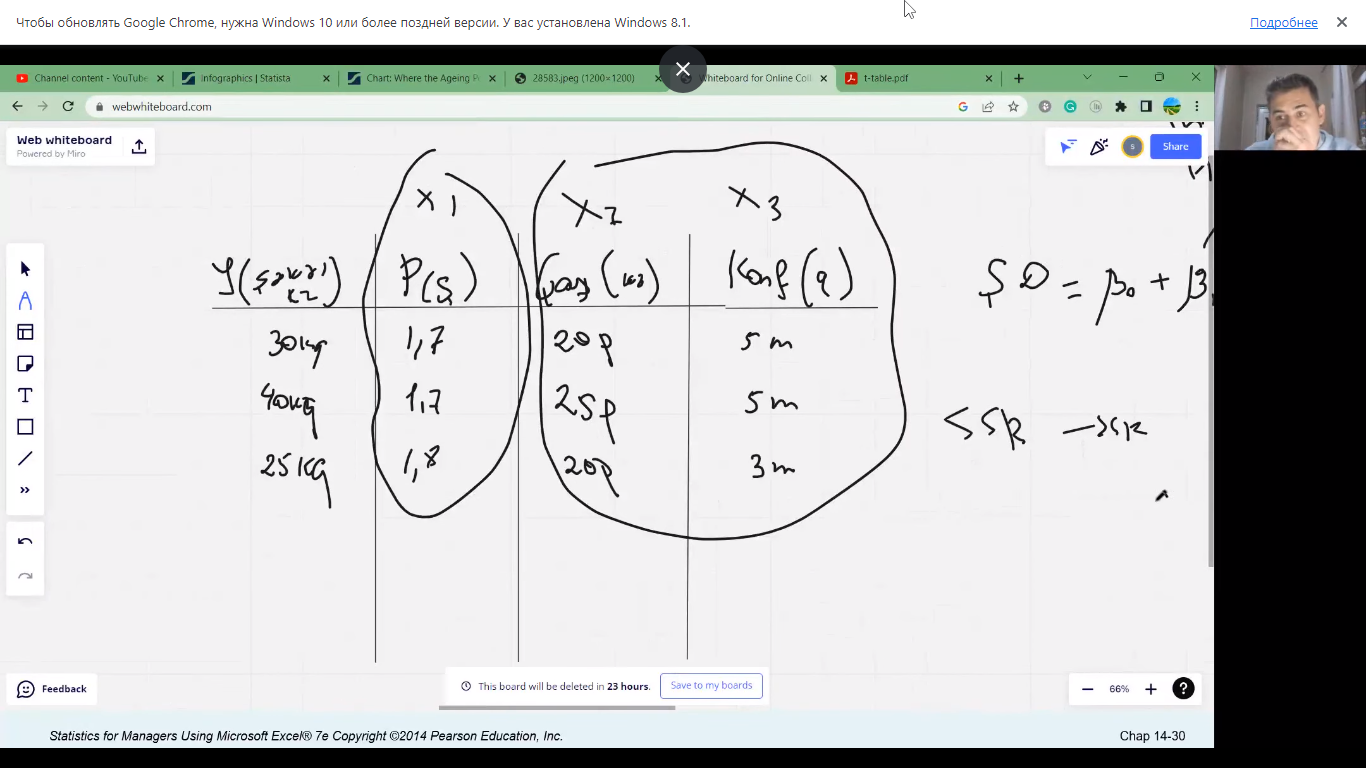 Чтобы обновлять Google Chrome, нужна Windows 10 или более поздней версии. У вас установлена Windows 8.1.
Подробнее
Channel content - YouTube
Infographics | Statista
Chart: Where the Ageing P
28583.jpeg (1200×1200)
Whiteboard for Online Coll
t-table.pdf
webwhiteboard.com
Web whiteboard
Powered by Miro
s
Share
x1
x2
x3
P(Ş)
30kg
1,7
20p
5m
40kg
1,7
25p
5m
25KG
1,8
20p
3m
ŞD = β0 + β
SSR
Feedback
This board will be deleted in 23 hours.
Save to my boards
66%
?
Statistics for Managers Using Microsoft Excel® 7e Copyright ©2014 Pearson Education, Inc.
Chap 14-30